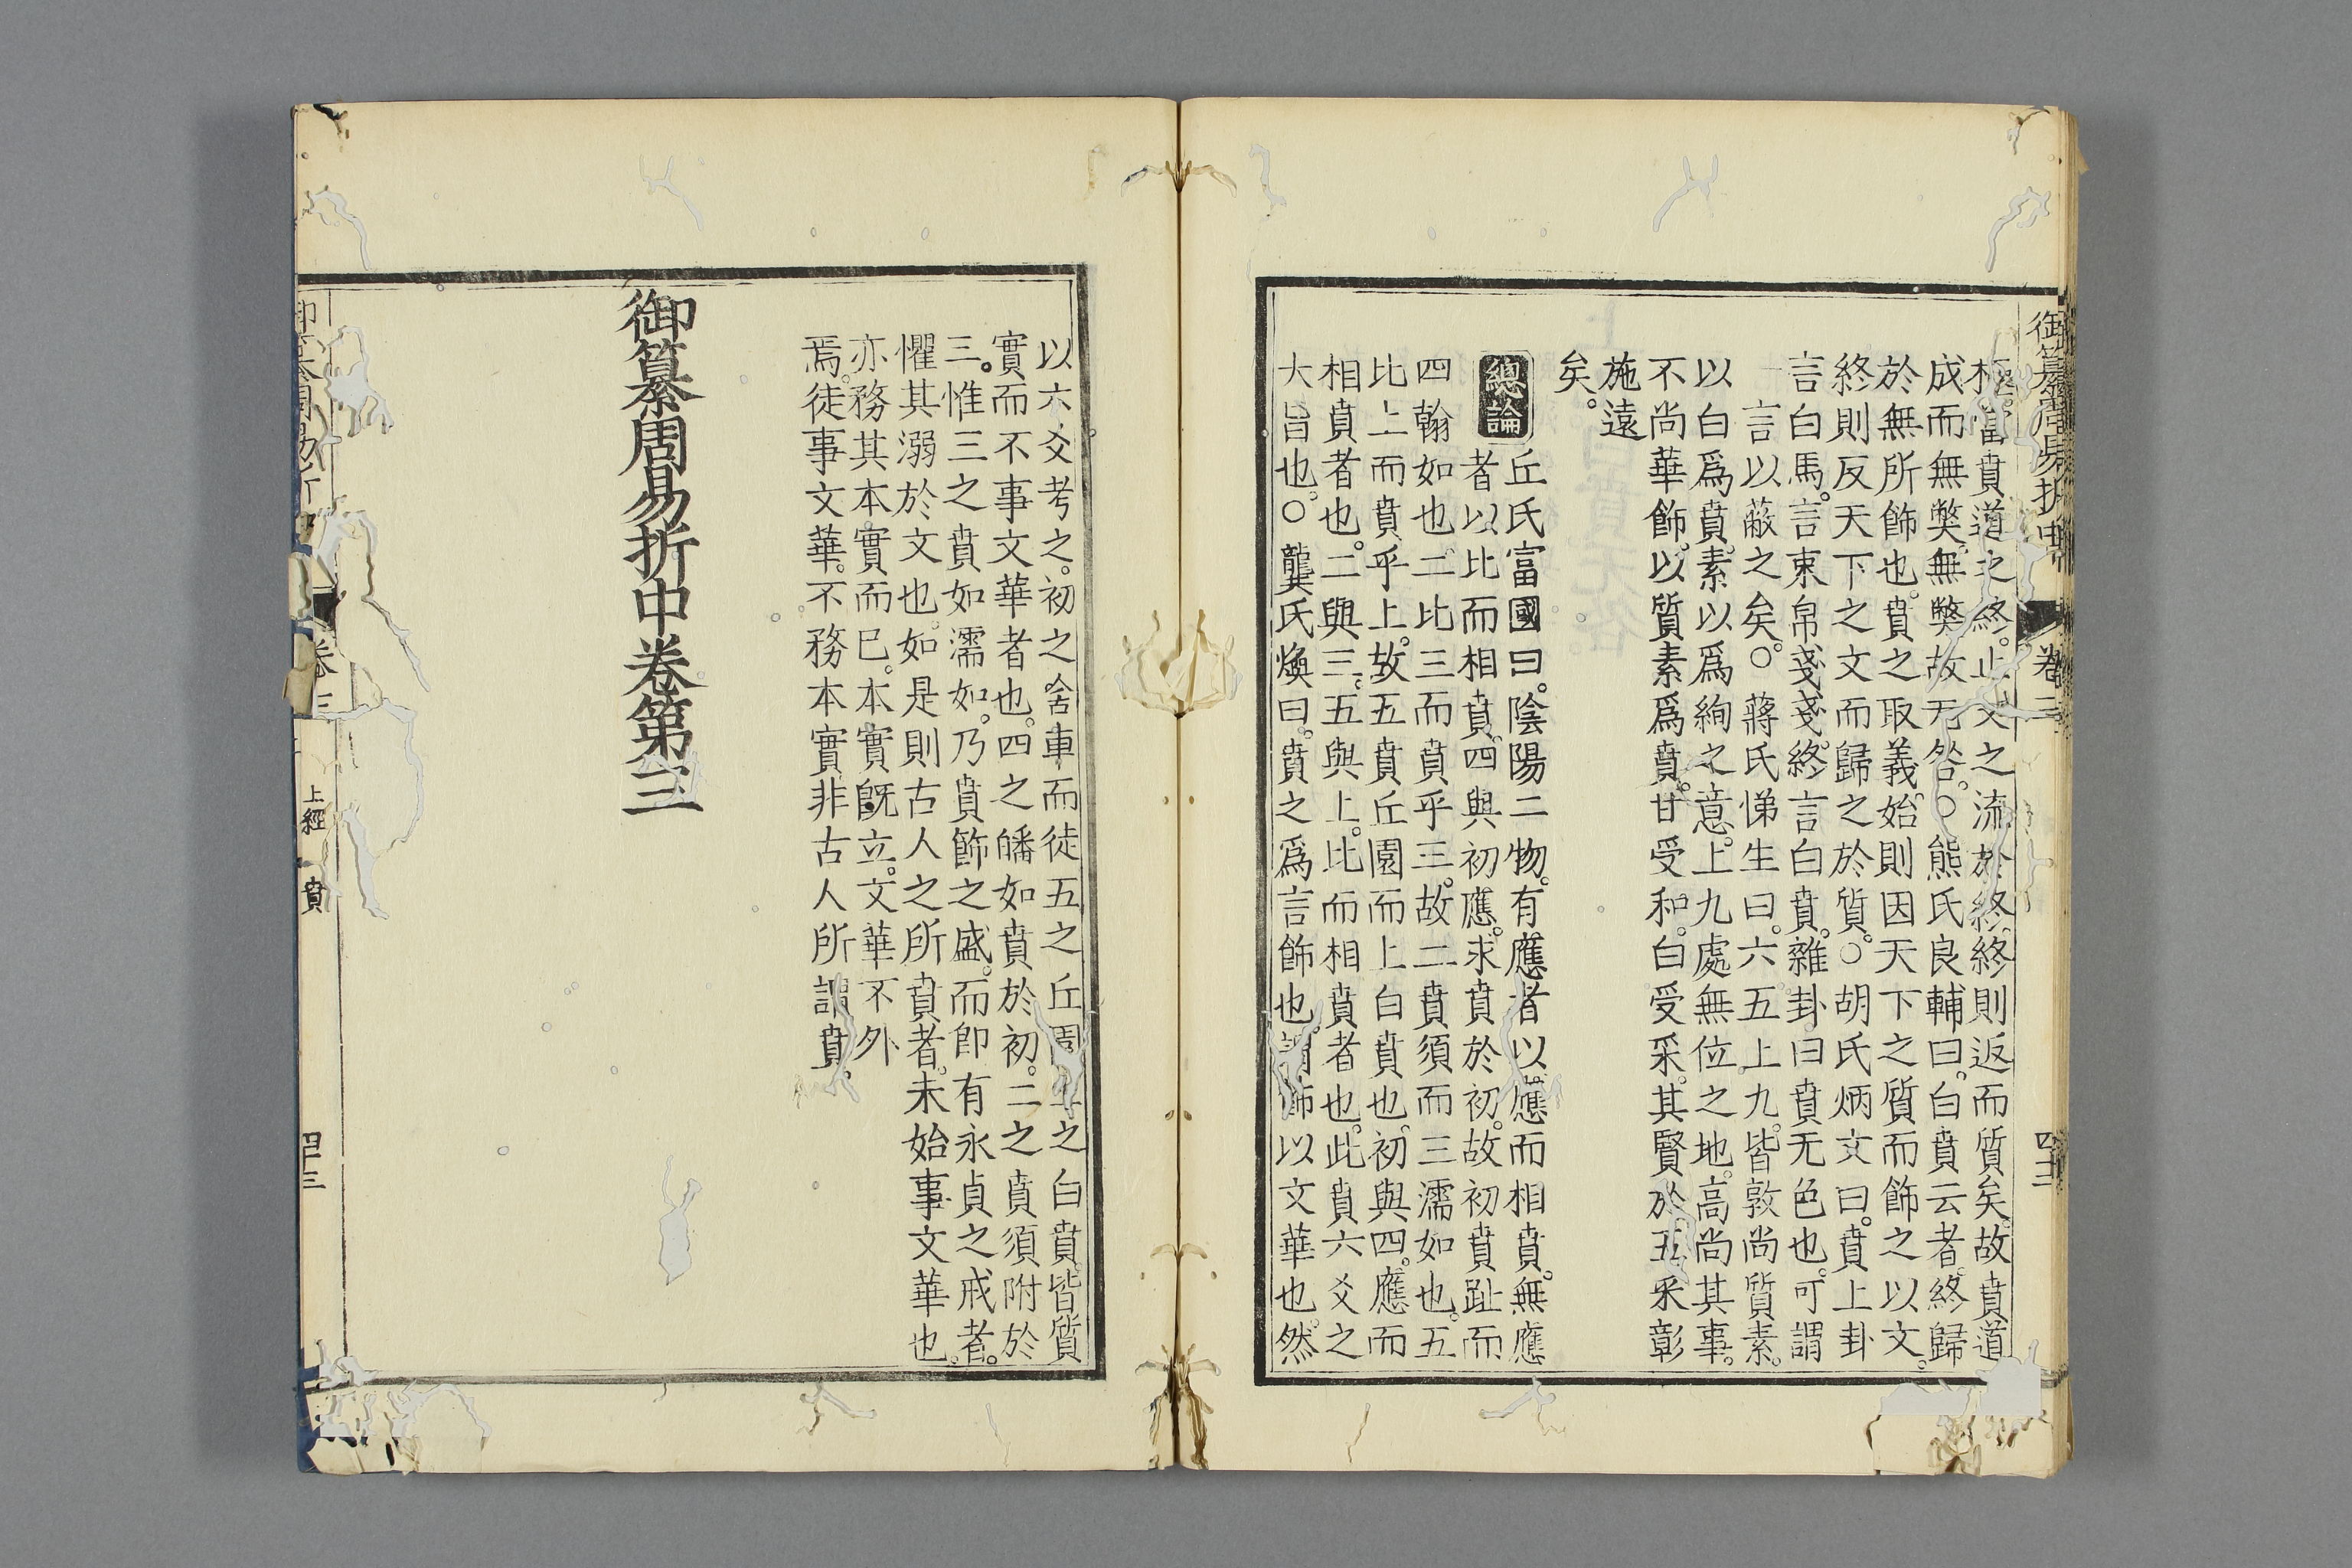 御纂周易折中 卷三 四三
極當賁道之終止文之流於終終則返而質矣故賁道
成而無弊無弊故无咎○熊氏良輔曰白賁云者終歸
於無所飾也賁之取義始則因天下之質而飾之以文
終則反天下之文而歸之於質○胡氏炳文曰賁上卦
言白馬言束帛戔戔終言白賁雜卦曰賁无色也可謂
一言以蔽之矣○蔣氏悌生曰六五上九皆敦尚質素
以白爲賁素以爲絢之意上九處無位之地高尚其事
不尚華飾以質素爲賁甘受和白受采其賢於五采彰
施遠
矣
總論 丘氏富國曰陰陽二物有應者以應而相賁無應
者以比而相賁四與初應求賁於初故初賁趾而
四翰如也二比三而賁乎三故二賁須而三濡如也五
比上而賁乎上故五賁丘園而上白賁也初與四應而
相賁者也二與三五與上比而相賁者也此賁六爻之
大旨也○龔氏煥曰賁之爲言飾也謂飾以文華也然
以六爻考之初之舍車而徒五之丘園上之白賁皆質
實而不事文華者也四之皤如賁於初二之賁須附於
三惟三之賁如濡如乃賁飾之盛而即有永貞之戒者
懼其溺於文也如是則古人之所賁者未始事文華也
亦務其本實而已本實旣立文華不外
焉徒事文華不務本實非古人所謂賁
御纂周易折中卷第三
御纂周易折中 卷三 上經 賁 四三